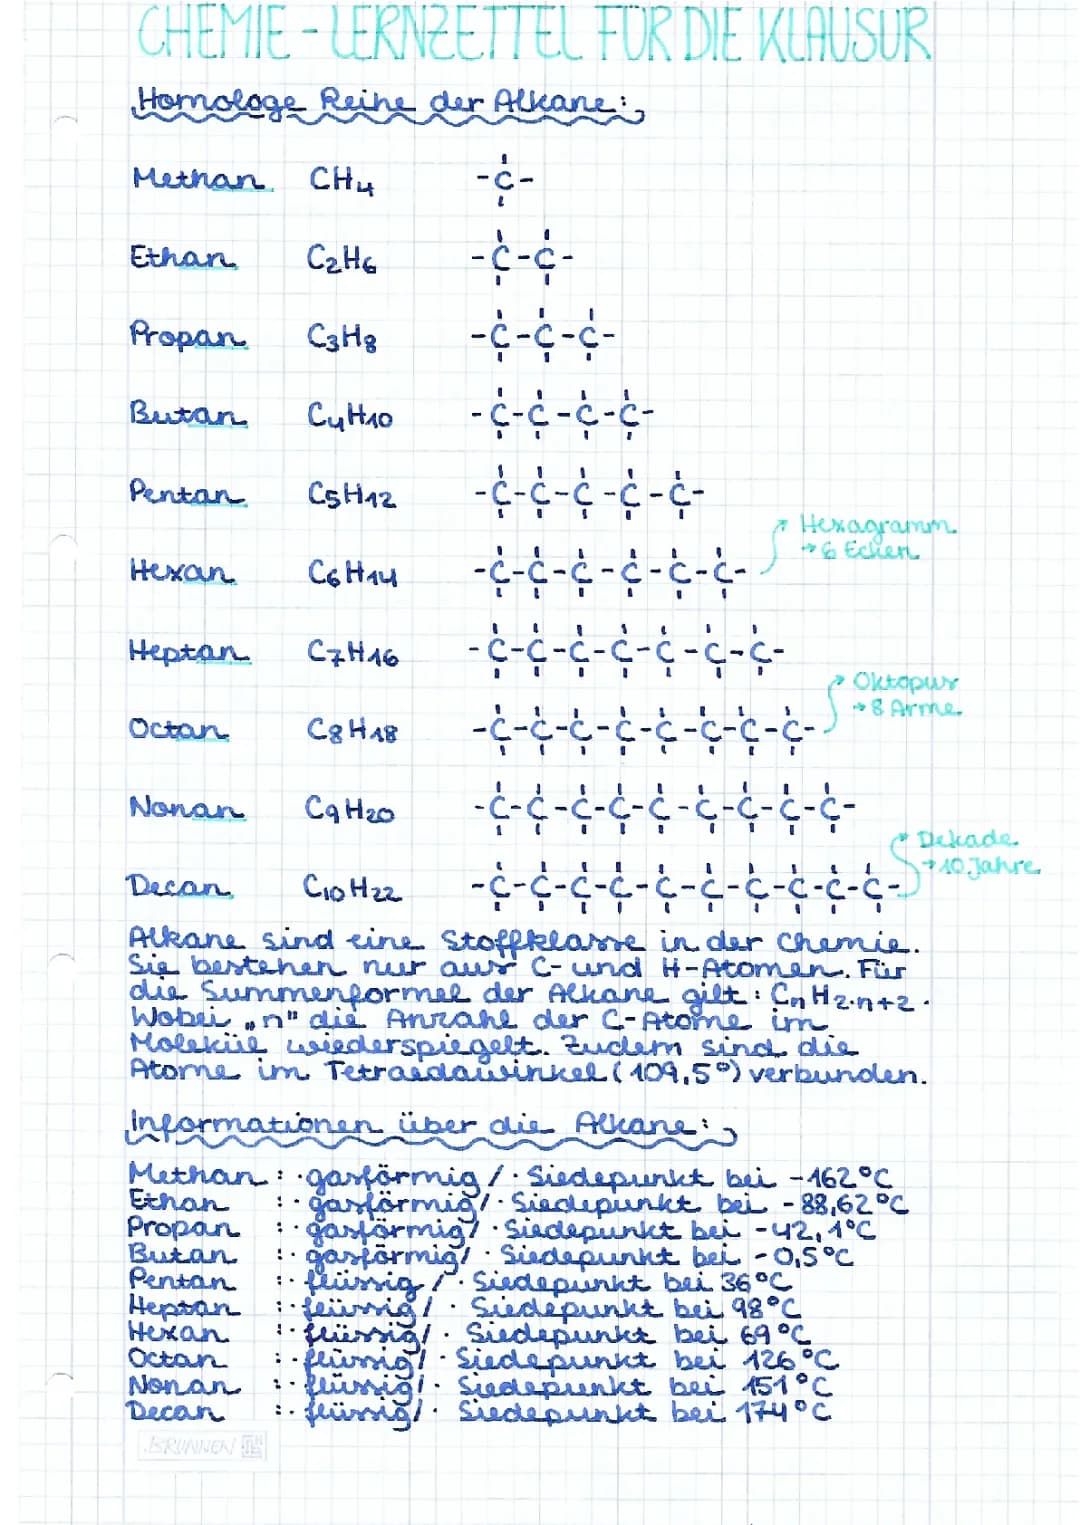 CHEMIE - LERNZETTEL FÜR DIE KLAUSUR
Homologe Reihe der Alkane:
Methan CH4 -C-
Ethan C2H6 -C-C-
Propan C3H8 -C-C-C-
Butan C4H10 -C-C-C-C-
Pentan C5H12 -C-C-C-C-C-
Hexagramm
→ 6 Ecken
Hexan C6H14 -C-C-C-C-C-C-
Heptan C7H16 -C-C-C-C-C-C-C-
Oktopus
→ 8 Arme
Octan C8H18 -C-C-C-C-C-C-C-C-
Nonan C9H20 -C-C-C-C-C-C-C-C-C-
Dekade
→ 10 Jahre
Decan C10H22 -C-C-C-C-C-C-C-C-C-C-
Alkane sind eine Stoffklasse in der Chemie.
Sie bestehen nur aus C- und H-Atomen. Für
die Summenformel der Alkane gilt: CnH2·n+2.
Wobei „n" die Anzahl der C-Atome im
Molekül wiederspiegelt. Zudem sind die
Atome im Tetraedawinkel (109,5°) verbunden.
Informationen über die Alkane:
Methan : · gasförmig / · Siedepunkt bei -162°C
Ethan : · gasförmig / · Siedepunkt bei -88,62°C
Propan : · gasförmig / · Siedepunkt bei -42,1°C
Butan : · gasförmig / · Siedepunkt bei -0,5°C
Pentan : · flüssig / · Siedepunkt bei 36°C
Heptan : · flüssig / · Siedepunkt bei 98°C
Hexan : · flüssig / · Siedepunkt bei 69°C
Octan : · flüssig / · Siedepunkt bei 126°C
Nonan : · flüssig / · Siedepunkt bei 151°C
Decan : · flüssig / · Siedepunkt bei 174°C
BRUNNEN